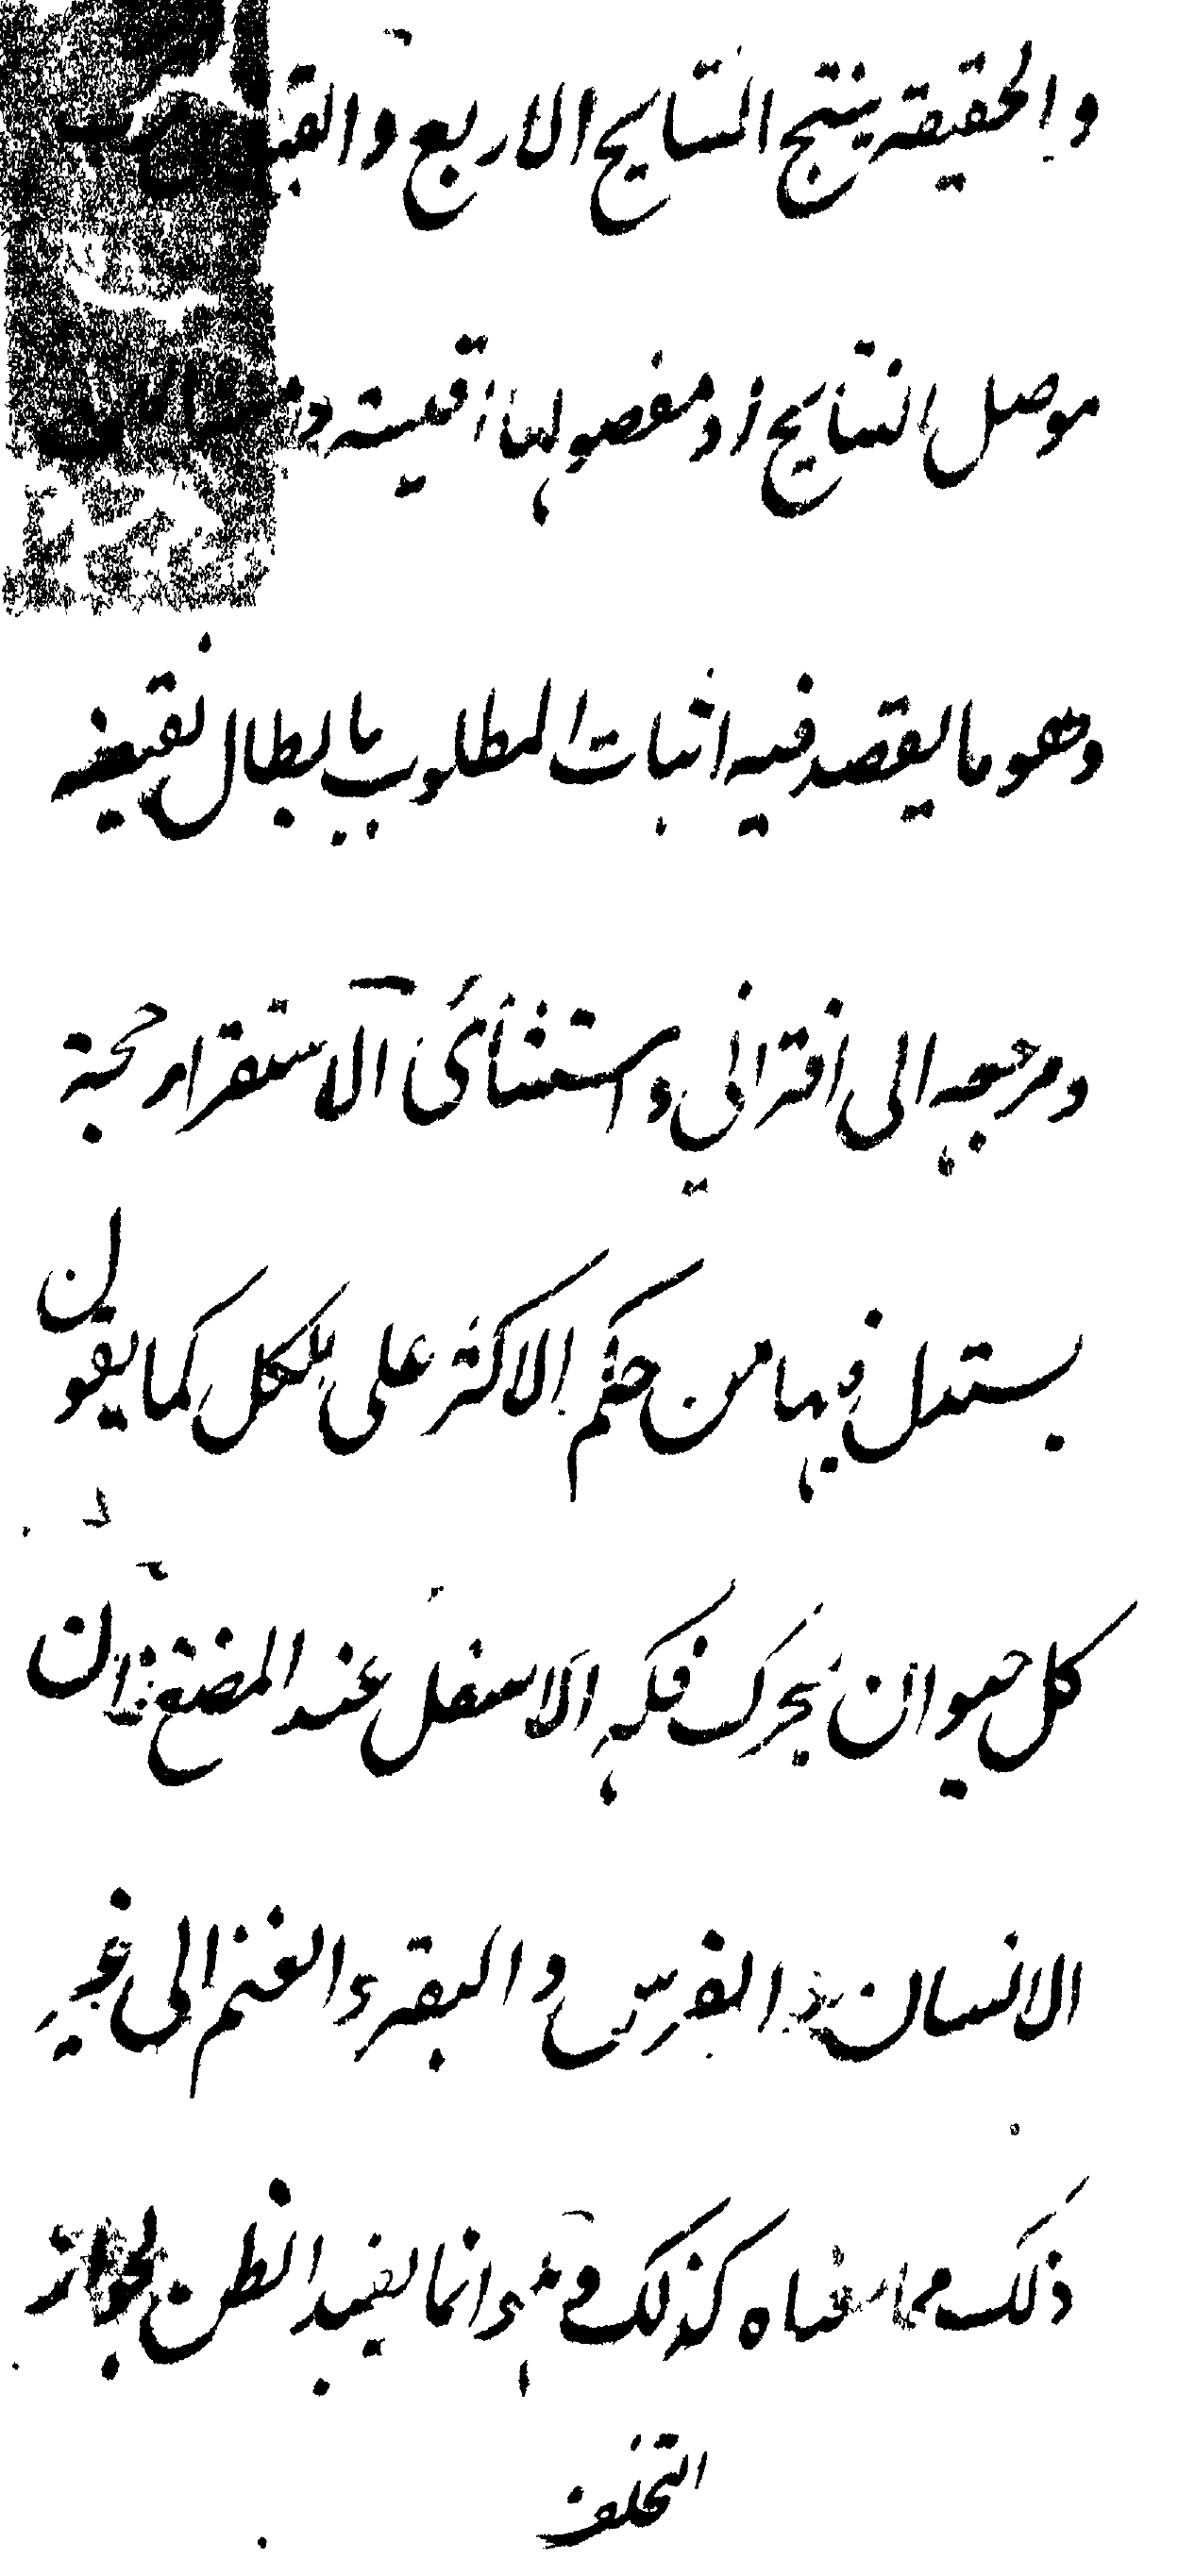 والحقيقة ينتج النتايج الاربع و
موصل النتايج او مفصولها اقيسة و
وهو ما يقصد فيه اثبات المطلوب بابطال نقيضه
ومرجعه الى اقتراني و استثنائى الاستقراء حجة
يستدل فيها من حكم الاكثر على الكل كما يقول
كل حيوان يحرك فكه الاسفل عند المضغ لان
الانسان و الفرس و البقر و الغنم الى غير
ذلك مما تتبعناه كذلك وهو انما يفيد الظن لجواز
التخلف